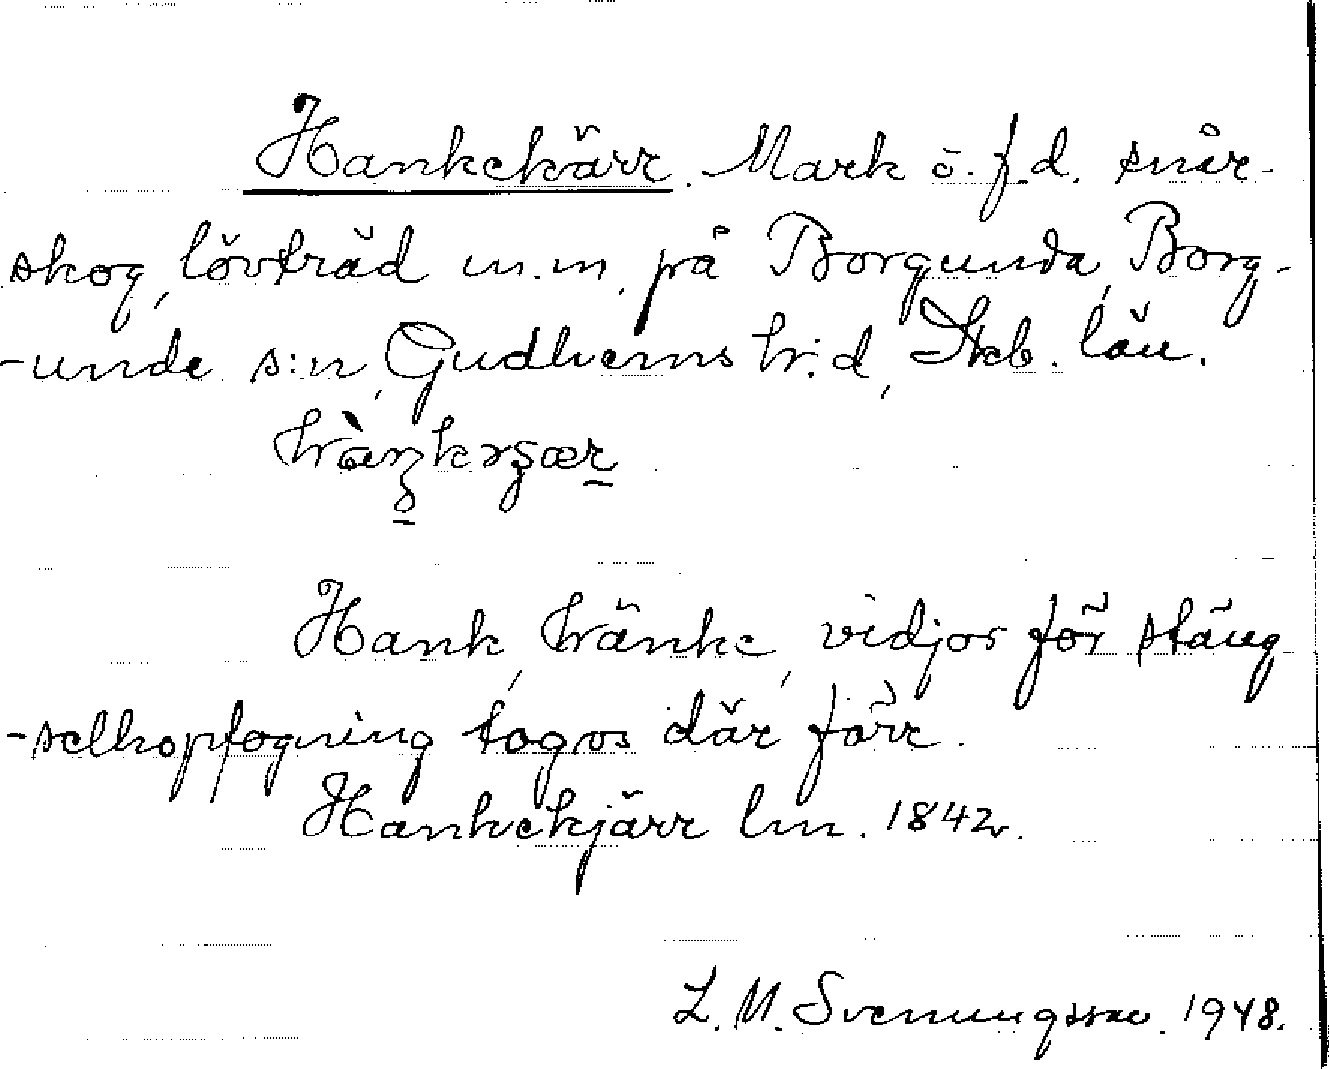 Hankekärr. Mark ö. f.d. snår-
skog, lövträd m.m. på Borgunda, Borg-
-unda s:n, Gudhems h:d, Skb. län.
Hank, hänke, vidjor för stäng-
-selhopfogning togos där förr.
Hankekjärr lm. 1842.
L. M. Svenungsson. 1948.